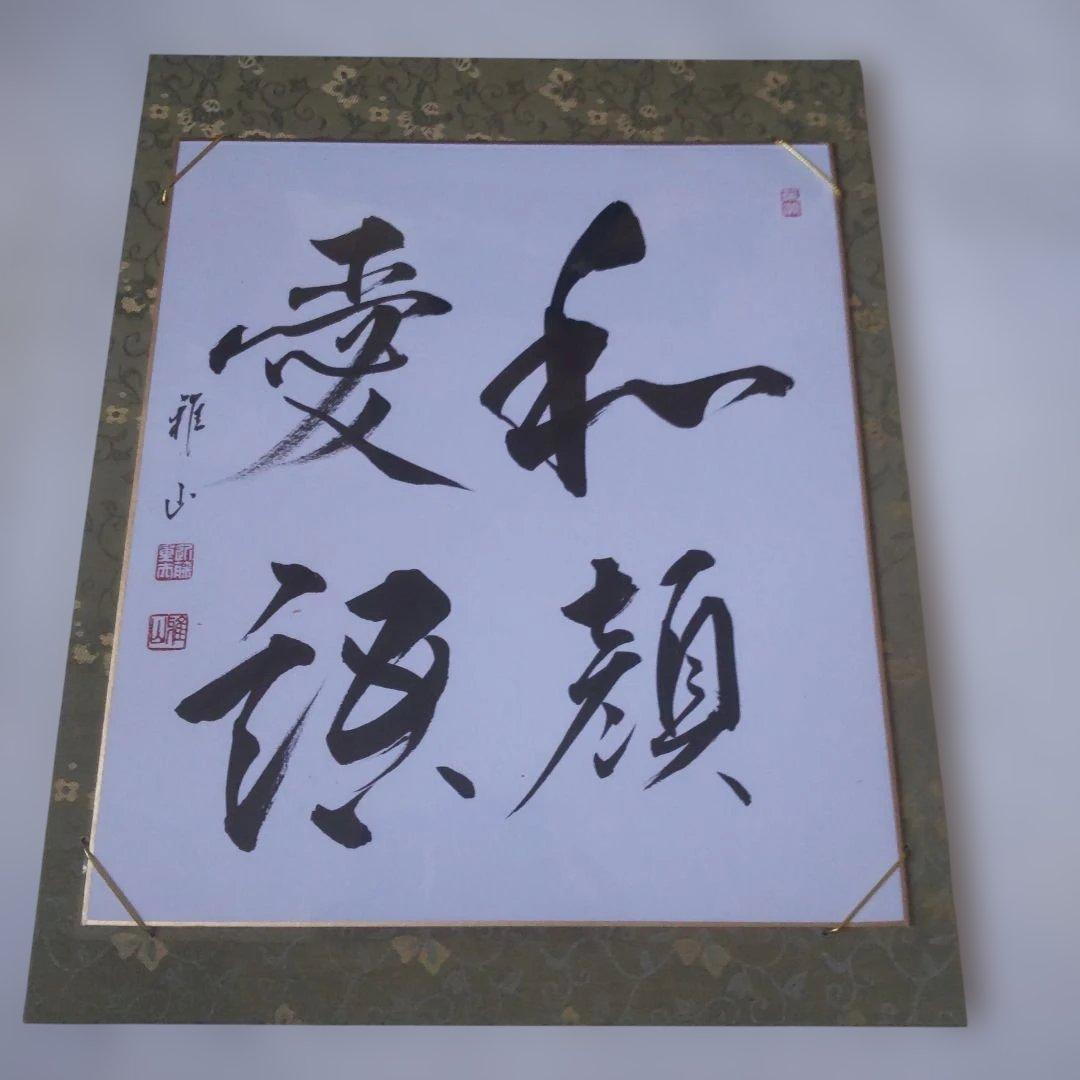 和顔
愛語
雅山